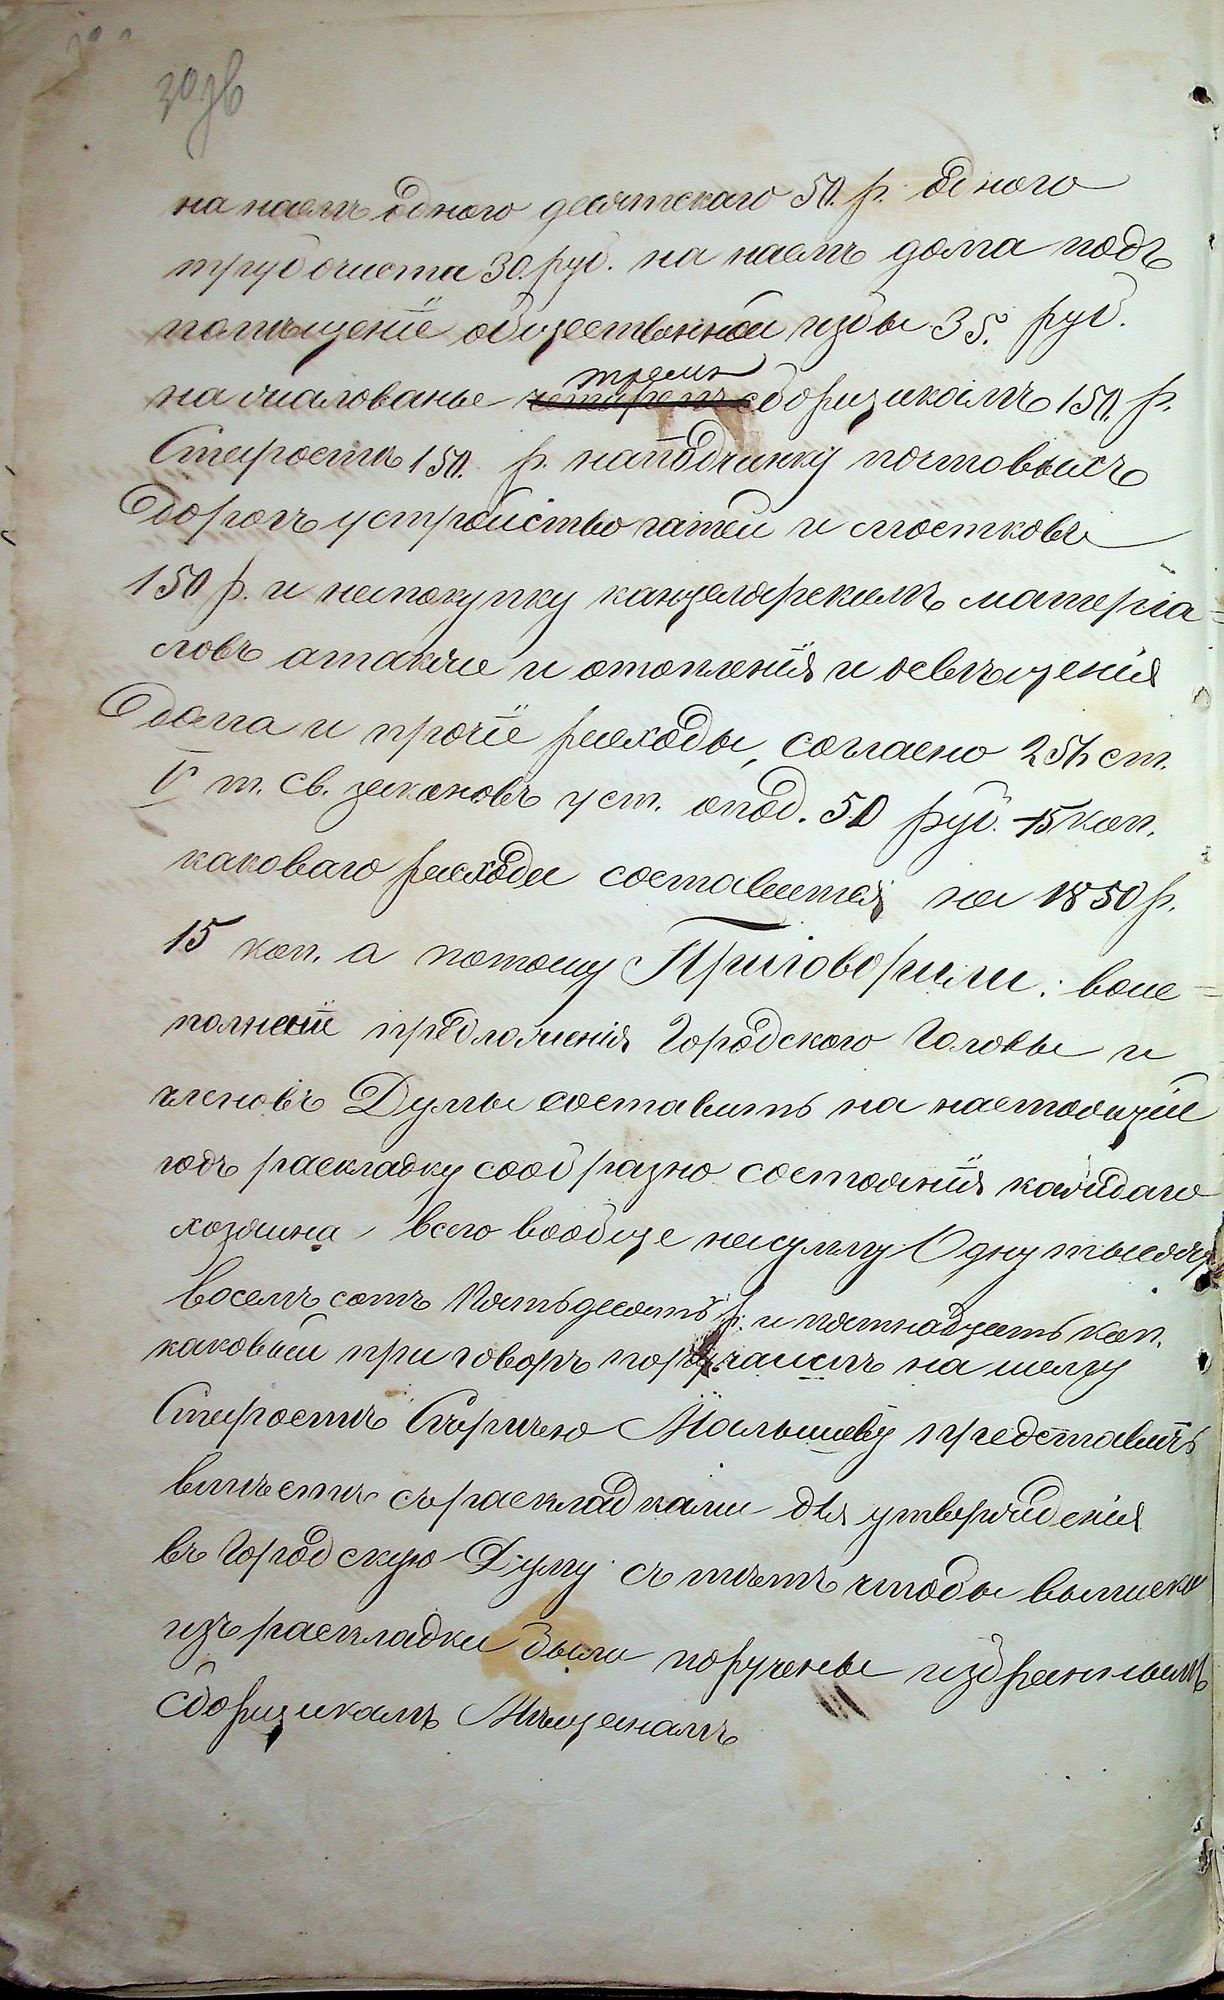 30 об
на наемъ одного десятскаго 50. р. одного
трубочиста 30. руб. на наемъ дома подъ
помѣщенiе общественной избы 35. руб.
на жалованье тремъ сборщикамъ 150. р.
Старостѣ 150. р. на подчинку почтовыхъ
дорогъ устройство гатей и мостковъ
150 р. и на покупку канцелярскимъ матерiа=
ловъ а также и отопленiя и освѣщенiя
дома и прочiе расходы, согласно ст.
V т. Св. законовъ уст. о под. 50 руб. 15 коп.
каковаго расхода составится на 1850 р.
15 коп. а потому Приговорили: во ис=
полненiе предложенiя Городского Головы и
членовъ Думы составить на настоящiй
годъ раскладку сообразно состоянiя каждаго
хозяина, всего вообще на сумму Одну тысячу
восемъ сотъ пятьдесятъ р. и пятнадцать коп.
каковый приговоръ поручаимъ нашему
Старостѣ Малышеву представить
вмѣстѣ съ раскладками для утвержденiя
въ Городскую Думу съ тѣмъ чтобы выписки
изъ раскладки были поручены избраннымъ
сборщикамъ Мѣщенамъ